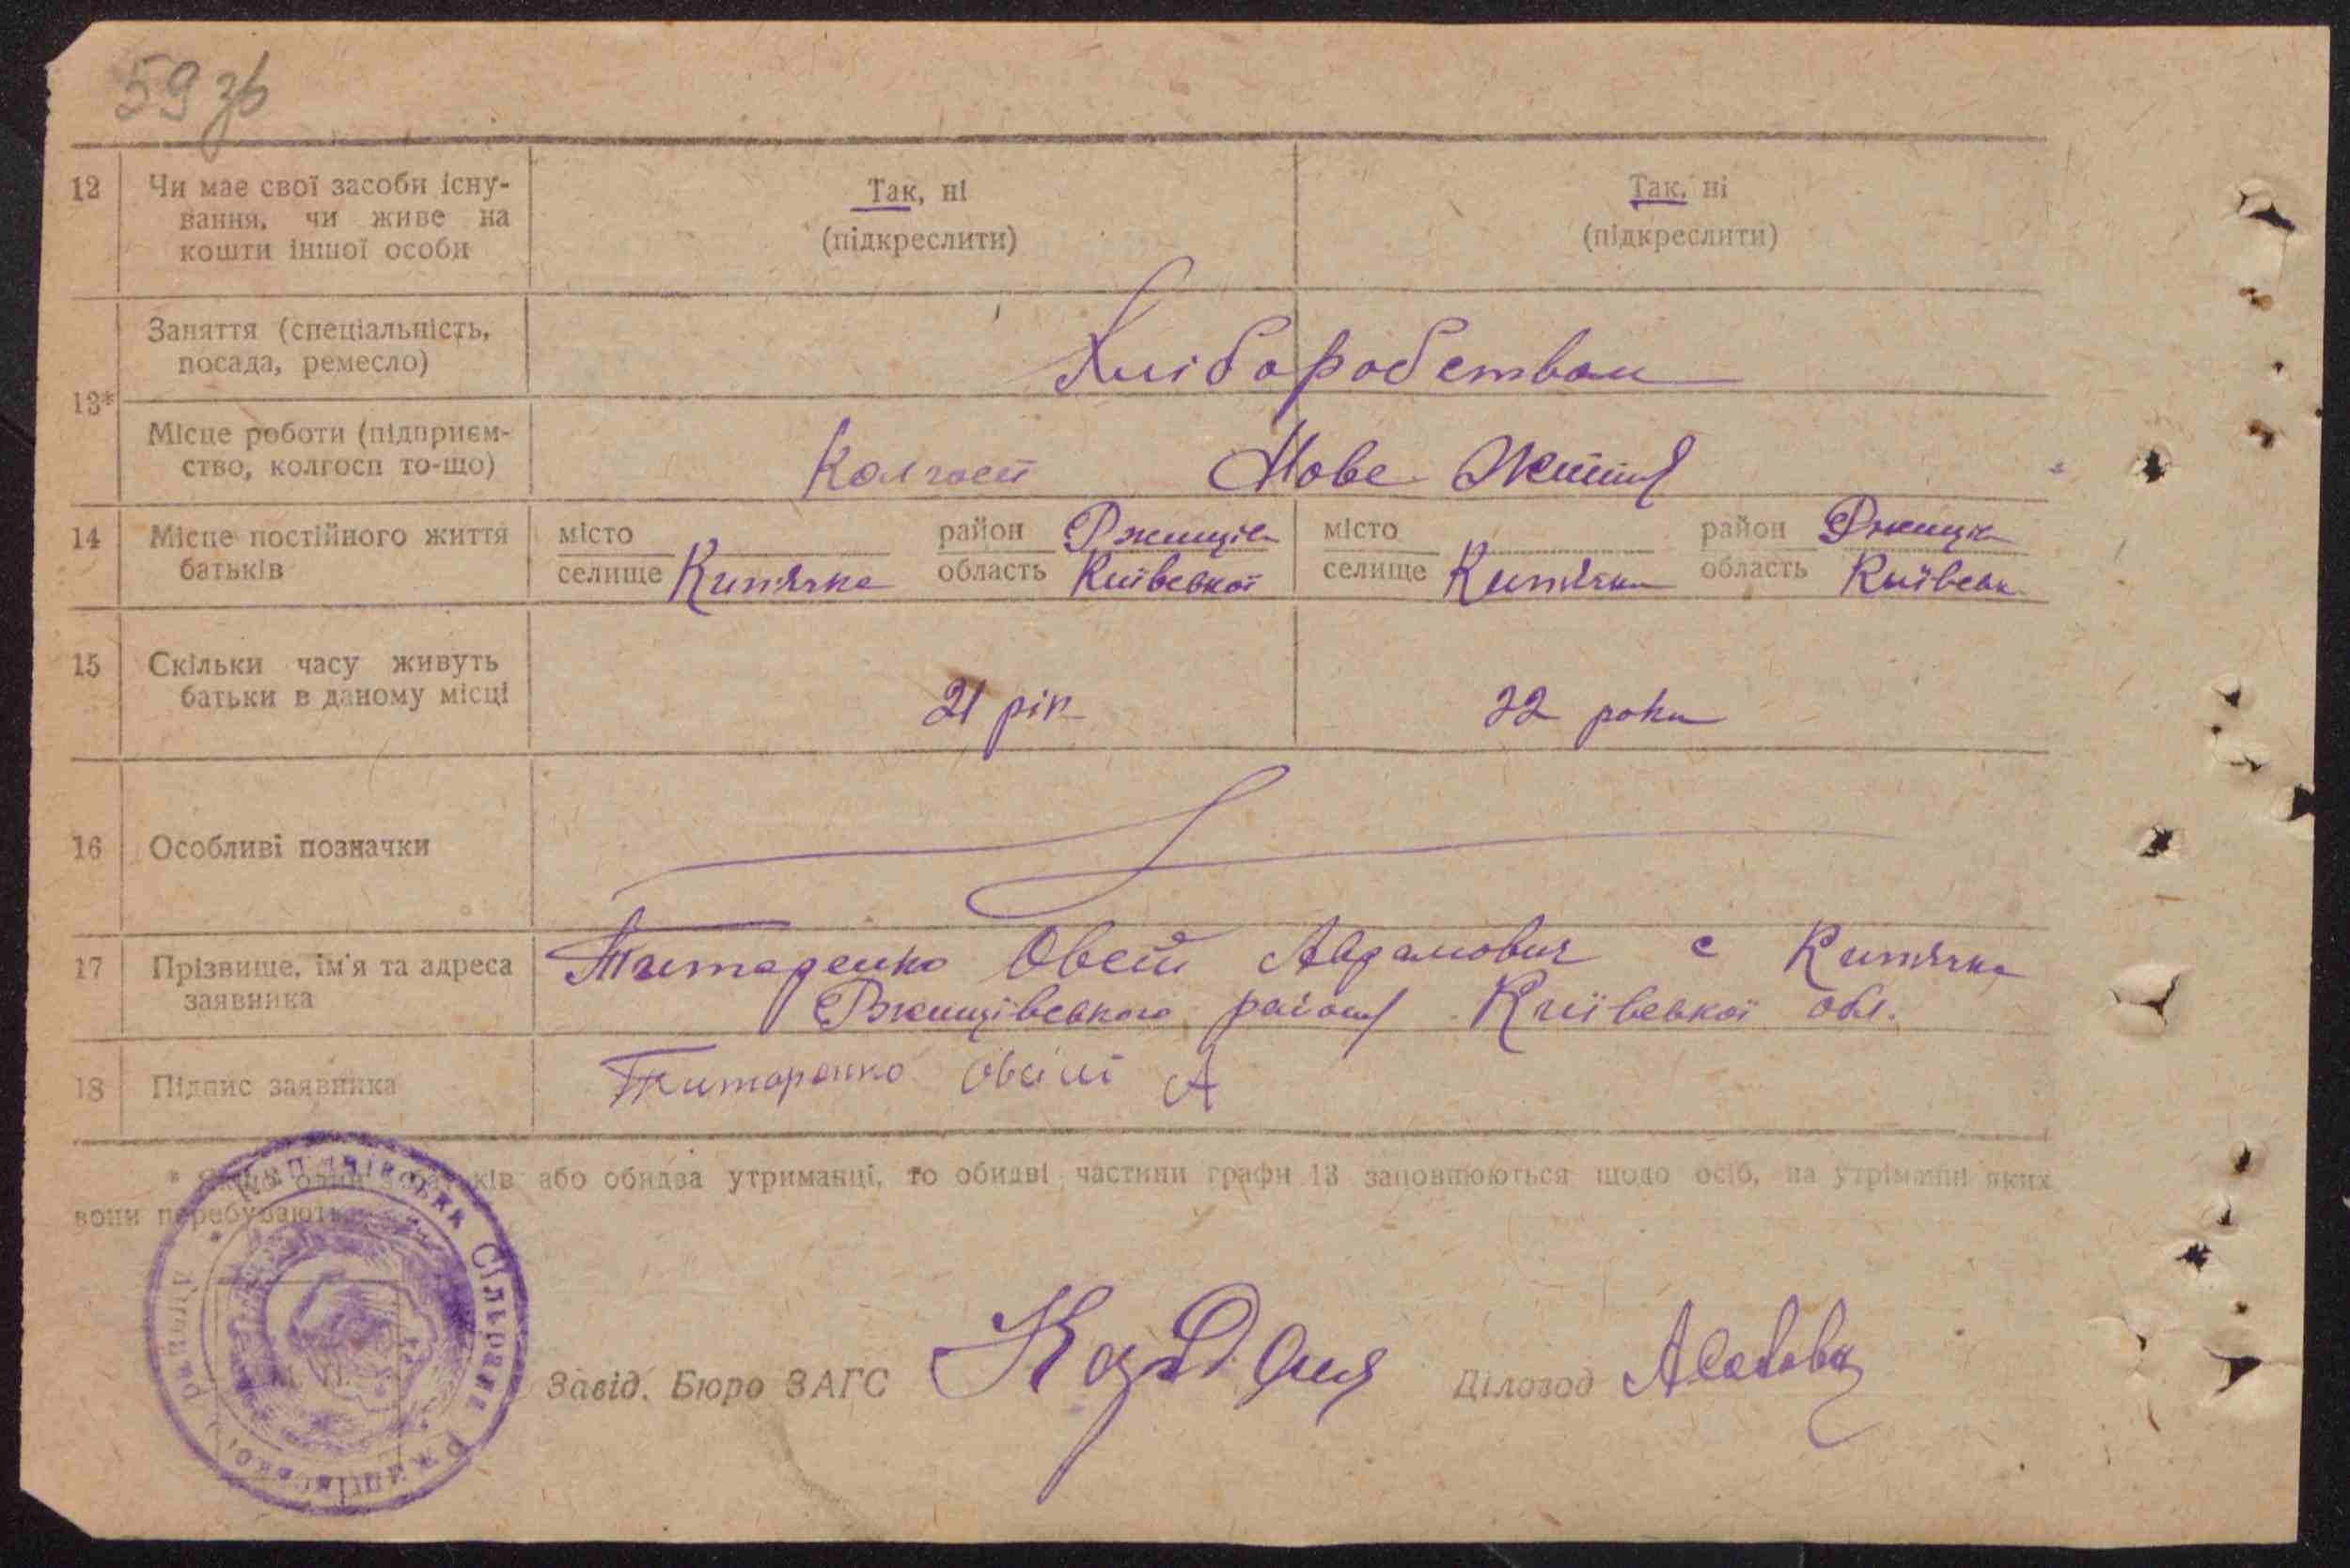 59 зв
12 Чи має свої засоби існу-
вання, чи живе на
кошти іншої особи
Так, ні
(підкреслити)
Так, ні
(підкреслити)
13*
Заняття (спеціальність,
посада, ремесло)
Хліборобством
Місце роботи (підприєм-
ство, колгосп то-що)
Колгосп Нове Життя
14 Місце постійного життя
батьків
місто район Ржищів
селище Кип'ячка область Київської
місто район Ржищів
селище Кип'ячка область Київськ
15 Скільки часу живуть
батьки в даному місці
21 рік
22 роки
16 Особливі позначки
17 Прізвище, ім'я та адреса
заявника
Титаренко Овсій Адамович с Кип'ячка
Ржищівського району Київської обл.
18 Підпис заявника
Титаренко Овсій А
* Якщо один з батьків або обидва утриманці, то обидві частини графи 13 заповнюються щодо осіб, на утріманні яких
вони перебувають.
Сільрада Ржищівського району
Завід. Бюро ЗАГС
Діловод